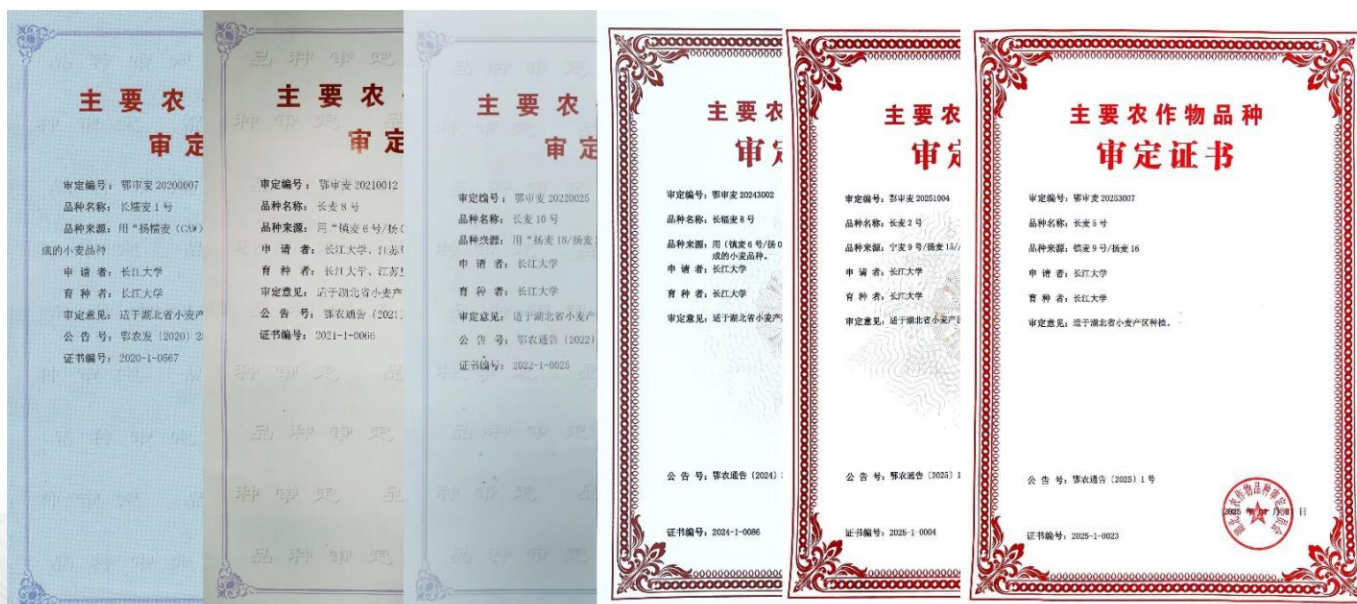 主要农
审定
审定编号：鄂审麦 20200007
品种名称：长糯麦 1 号
品种来源：用“扬糯麦（CAW）
成的小麦品种
申 请 者：长江大学
育 种 者：长江大学
审定意见：适于湖北省小麦产
公 告 号：鄂农发（2020）2
证书编号：2020-1-0567
主要农
审定
审定编号：鄂审麦 20210012
品种名称：长麦 8 号
品种来源：用“镇麦 6 号/扬
申 请 者：长江大学、江苏
育 种 者：长江大学、江苏
审定意见：适于湖北省小麦产
公 告 号：鄂农通告（2021）
证书编号：2021-1-0066
主要农
审定
审定编号：鄂审麦 20220025
品种名称：长麦 10 号
品种来源：用“扬麦 18/扬麦
申 请 者：长江大学
育 种 者：长江大学
审定意见：适于湖北省小麦产
公 告 号：鄂农通告（2022）
证书编号：2022-1-0025
主要农
审定
审定编号：鄂审麦 20243002
品种名称：长福麦 8 号
品种来源：用（镇麦 6 号/扬 0
成的小麦品种。
申 请 者：长江大学
育 种 者：长江大学
审定意见：适于湖北省小麦产
公 告 号：鄂农通告（2024）
证书编号：2024-1-0086
主要农
审定
审定编号：鄂审麦 20251004
品种名称：长麦 2 号
品种来源：宁麦 9 号/扬麦 15/
申 请 者：长江大学
育 种 者：长江大学
审定意见：适于湖北省小麦产
公 告 号：鄂农通告〔2025〕1
证书编号：2025-1-0004
主要农作物品种
审定证书
审定编号：鄂审麦 20253007
品种名称：长麦 5 号
品种来源：镇麦 9 号/扬麦 16
申 请 者：长江大学
育 种 者：长江大学
审定意见：适于湖北省小麦产区种植。
公 告 号：鄂农通告〔2025〕1 号
证书编号：2025-1-0023